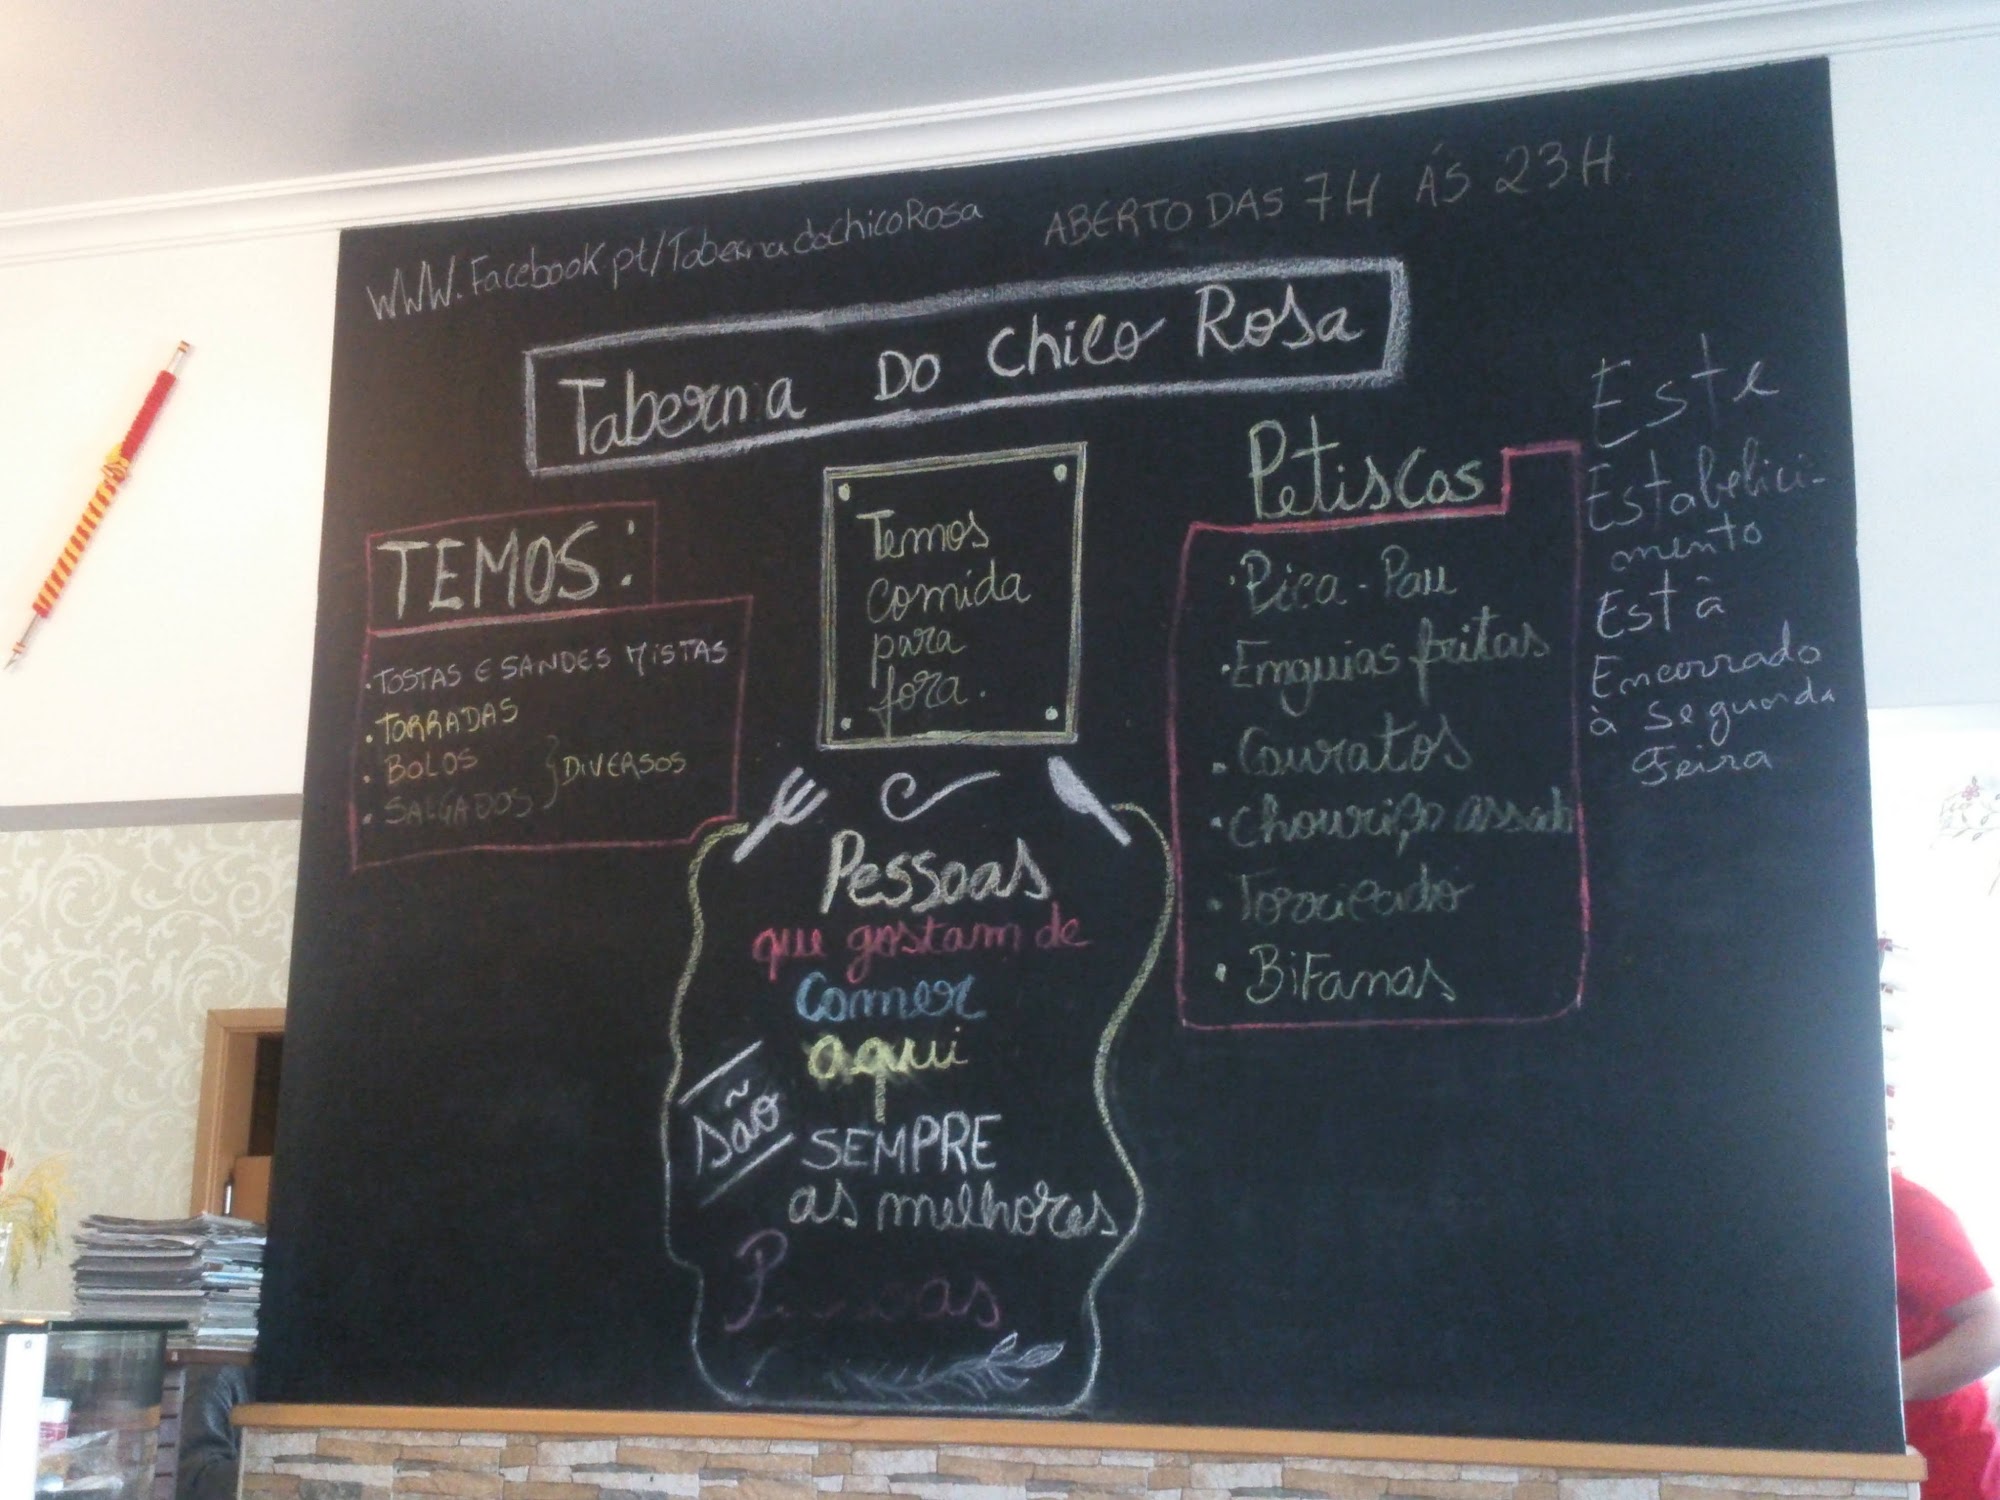 WWW.Facebook.pt/TabernadoChicoRosa
ABERTO DAS 7H ÁS 23H
Taberna Do Chico Rosa
TEMOS:
• TOSTAS E SANDES MISTAS
• TORRADAS
• BOLOS
• SALGADOS } DIVERSOS
Temos
comida
para
fora.
Pessoas
que gostam de
Comer
aqui
São
SEMPRE
as melhores
Petiscos
• Pica-Pau
• Enguias fritas
• Couratos
• Chouriço assado
• Torricado
• BiFanas
Este
Estabelici-
mento
Està
Encerrado
à Segunda
Feira